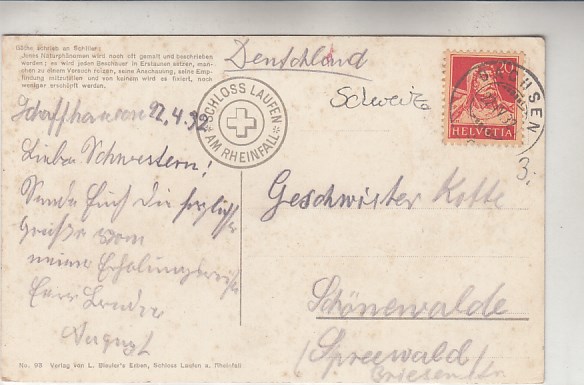 Göthe schrieb an Schiller:
„Jenes Naturphänomen wird noch oft gemalt und beschrieben
werden; es wird jeden Beschauer in Erstaunen setzen, man-
chen zu einem Versuch reizen, seine Anschauung, seine Emp-
findung mitzuteilen und von keinem wird es fixiert, noch
weniger erschöpft werden.
Deutschland
Schweiz
SCHLOSS LAUFEN
AM RHEINFALL
20
HELVETIA
Schaffhausen 22.4.32
Lieben Schwestern!
Sende Euch die herzlichsten
Grüße vom
meiner Erholungsreise
Euer Bruder
August
3.
Geschwister Kotte
Schönewalde
Spreewald
No. 93 Verlag von L. Bleuler's Erben, Schloss Laufen a. Rheinfall